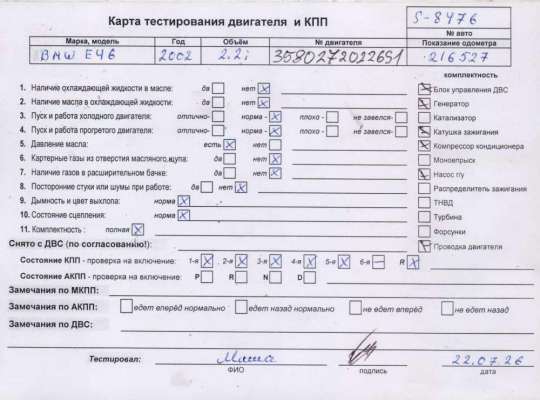 Карта тестирования двигателя и КПП
S-8476
№ авто
Марка, модель Год Объём № двигателя Показание одометра
BMW E46 2002 2.2i 35802720226S1 216527
комплектность
1. Наличие охлаждающей жидкости в масле: да нет X
Блок управления ДВС
2. Наличие масла в охлаждающей жидкости: да нет X
Генератор
3. Пуск и работа холодного двигателя: отлично- норма - X плохо - не завелся-
Катализатор
4. Пуск и работа прогретого двигателя: отлично- норма - X плохо - не завелся-
Катушка зажигания
5. Давление масла: есть X нет
Компрессор кондиционера
6. Картерные газы из отверстия масляного щупа: да нет X
Моновпрыск
7. Наличие газов в расширительном бачке: да нет X
Насос г/у
8. Посторонние стуки или шумы при работе: да нет X
Распределитель зажигания
9. Дымность и цвет выхлопа: норма X
ТНВД
10. Состояние сцепления: норма X
Турбина
11. Комплектность : полная X
Форсунки
Снято с ДВС (по согласованию!):
Проводка двигателя
Состояние КПП - проверка на включение: 1-я X 2-я X 3-я X 4-я X 5-я X 6-я — R X
Состояние АКПП - проверка на включение: P R N D
Замечания по МКПП:
Замечания по АКПП: едет вперёд нормально едет назад нормально не едет вперед не едет назад
Замечания по ДВС:
Тестировал: Миша 22.07.26
ФИО подпись дата